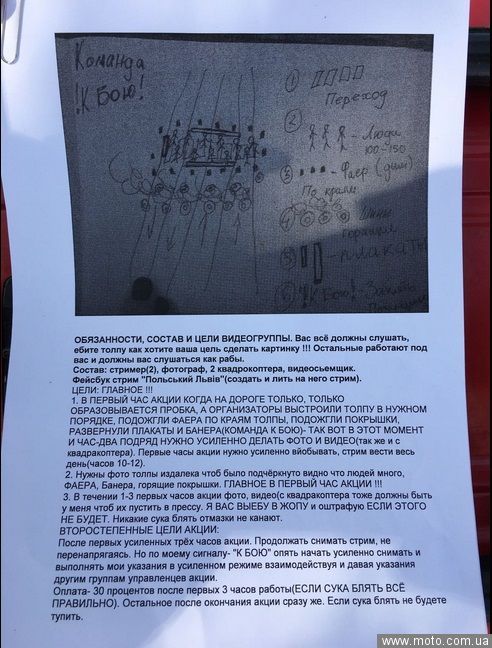 Команда
!К Бою!
① Переход
②
Люди
100-150
③ Фаер (дым)
По краям
④ Шины
горящие
⑤ плакаты
⑥ !К Бою!
ОБЯЗАННОСТИ, СОСТАВ И ЦЕЛИ ВИДЕОГРУППЫ. Вас всё должны слушать,
ебите толпу как хотите ваша цель сделать картинку !!! Остальные работают под
вас и должны вас слушаться как рабы.
Состав: стример(2), фотограф, 2 квадрокоптера, видеосьемщик.
Фейсбук стрим "Польський Львів"(создать и лить на него стрим).
ЦЕЛИ: ГЛАВНОЕ !!!
1. В ПЕРВЫЙ ЧАС АКЦИИ КОГДА НА ДОРОГЕ ТОЛЬКО, ТОЛЬКО
ОБРАЗОВЫВАЕТСЯ ПРОБКА, А ОРГАНИЗАТОРЫ ВЫСТРОИЛИ ТОЛПУ В НУЖНОМ
ПОРЯДКЕ, ПОДОЖГЛИ ФАЕРА ПО КРАЯМ ТОЛПЫ, ПОДОЖГЛИ ПОКРЫШКИ,
РАЗВЕРНУЛИ ПЛАКАТЫ И БАНЕРА(КОМАНДА К БОЮ)- ТАК ВОТ В ЭТОТ МОМЕНТ
И ЧАС-ДВА ПОДРЯД НУЖНО УСИЛЕННО ДЕЛАТЬ ФОТО И ВИДЕО(так же и с
квадракоптера). Первые часы акции нужно усиленно вйобывать, стрим вести весь
день(часов 10-12).
2. Нужны фото толпы издалека чтоб было подчёркнуто видно что людей много,
ФАЕРА, Банера, горящие покрышки. ГЛАВНОЕ В ПЕРВЫЙ ЧАС АКЦИИ !!!
3. В течении 1-3 первых часов акции фото, видео(с квадракоптера тоже должны быть
у меня чтоб их пустить в прессу. Я ВАС ВЫЕБУ В ЖОПУ и оштрафую ЕСЛИ ЭТОГО
НЕ БУДЕТ. Никакие сука блять отмазки не канают.
ВТОРОСТЕПЕННЫЕ ЦЕЛИ АКЦИИ:
После первых усиленных трёх часов акции. Продолжать снимать стрим, не
перенапрягаясь. Но по моему сигналу- "К БОЮ" опять начать усиленно снимать и
выполнять мои указания в усиленном режиме взаимодействуя и давая указания
другим группам управленцев акции.
Оплата- 30 процентов после первых 3 часов работы(ЕСЛИ СУКА БЛЯТЬ ВСЁ
ПРАВИЛЬНО). Остальное после окончания акции сразу же. Если сука блять не будете
тупить.
www.moto.com.ua